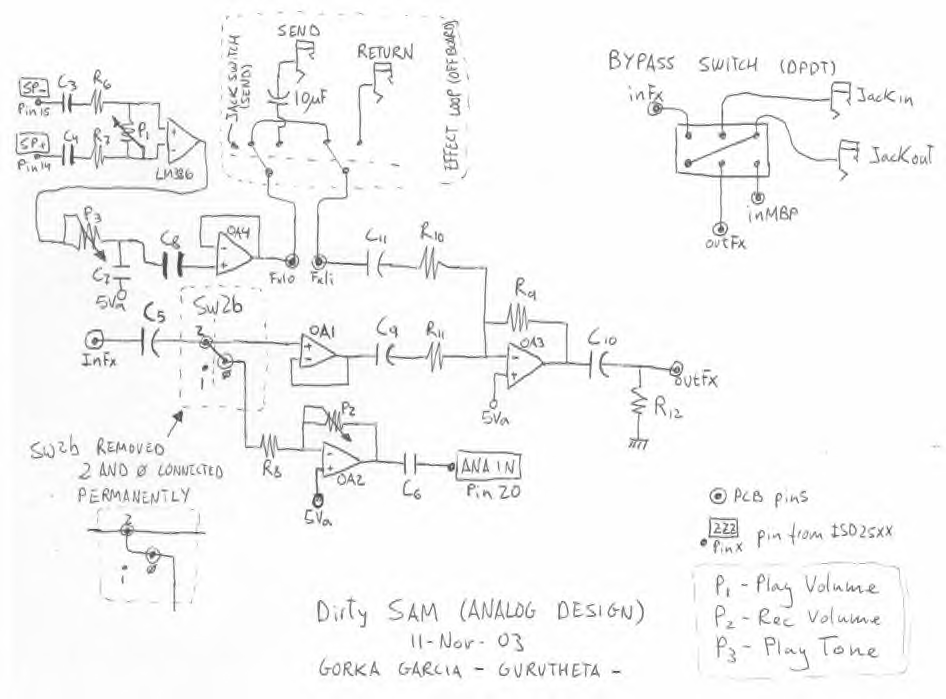 SEND
RETURN
JACK SWITCH
(SEND)
10µF
EFFECT LOOP (OFFBOARD)
BYPASS SWITCH (DPDT)
inFx
Jack in
Jack out
inMBP
outFx
SP-
Pin 15
C3
R6
P1
SP+
Pin 14
C4
R7
LM386
P3
C7
5Va
C8
OA4
Fxlo
Fxli
C11
R10
R9
InFx
C5
Sw2b
2
i
ø
OA1
C9
R11
OA3
5Va
C10
outFx
R12
R8
P2
OA2
5Va
C6
ANA IN
Pin 20
SW2b REMOVED
2 AND Ø CONNECTED
PERMANENTLY
2
i
ø
PCB pins
ZZZ
Pin X
pin from ISD25XX
P1 - Play Volume
P2 - Rec Volume
P3 - Play Tone
Dirty SAM (ANALOG DESIGN)
11-Nov-03
GORKA GARCIA - GURUTHETA -